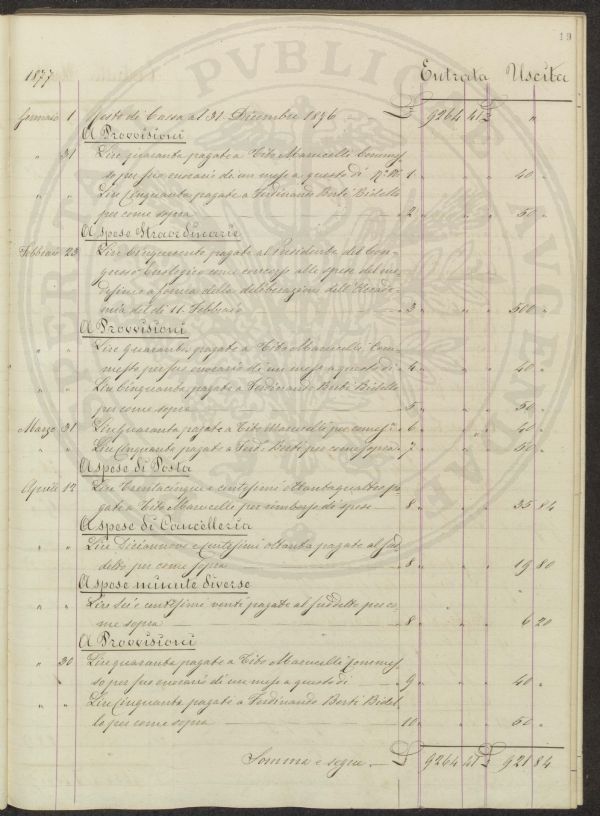 19
1877 Entrata Uscita
Gennaio 1 Resto di Cassa al 31 Dicembre 1876 — £ 9264 41 £ "
A Provvisioni
" 31 Lire quaranta pagate a Tito Marucelli Commes-
so per suo onorario di un mese a questo dì 1 " " " 40 "
" " Lire Cinquanta pagate a Ferdinando Berti Bidello
per come sopra — 2 " " " 50 "
A spese Straordinarie
Febbraio 23 Lire Cinquecento pagate al Presidente del Con-
gresso Enologico come concorso alle spese del me-
desimo a forma della deliberazione dell'Accade-
mia del dì 11. Febbraio — 3 " " " 500 "
A Provvisioni
" " Lire quaranta pagate a Tito Marucelli Com-
messo per suo onorario di un mese a questo dì - 4 " " " 40 "
" " Lire Cinquanta pagate a Ferdinando Berti Bidello
per come sopra — 5 " " " 50 "
Marzo 31 Lire Quaranta pagate a Tito Marucelli per come sa - 6 " " " 40 "
" " Lire Cinquanta pagate a Ferd. Berti per come sopra - 7 " " " 50 "
A spese di Posta
Aprile 12 Lire Trentacinque e centesimi ottantaquattro pa-
gate a Tito Marucelli per rimborso di spese — 8 " " " 35 84
A spese di Cancelleria
" " Lire Diciannove e Centesimi ottanta pagate al sud-
detto per come sopra — 8 " " " 19 80
A spese minute diverse
" " Lire Sei e centesimi venti pagate al suddetto per co-
me sopra — 8 " " " 6 20
A Provvisioni
" 30 Lire quaranta pagate a Tito Marucelli Commes-
so per suo onorario di un mese a questo dì — 9 " " " 40 "
" " Lire Cinquanta pagate a Ferdinando Berti Bidel-
lo per come sopra — 10 " " " 50 "
Somma e segue — £ 9264 41 £ 921 84